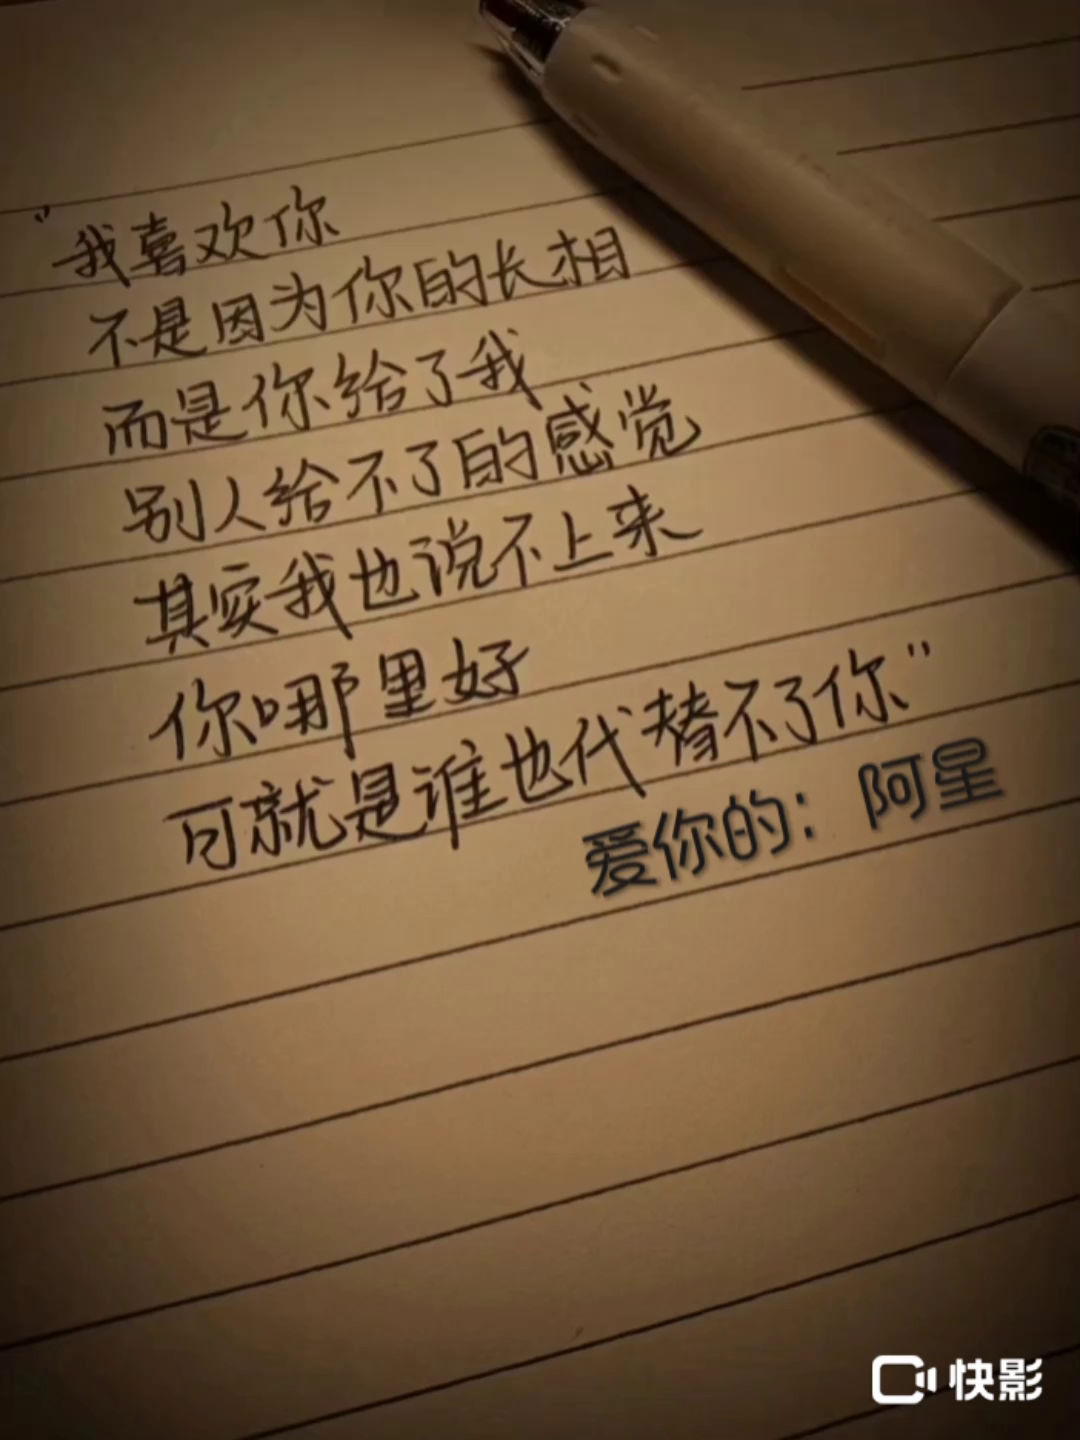 “我喜欢你
不是因为你的长相
而是你给了我
别人给不了的感觉
其实我也说不上来
你哪里好
可就是谁也代替不了你”
爱你的：阿星
快影